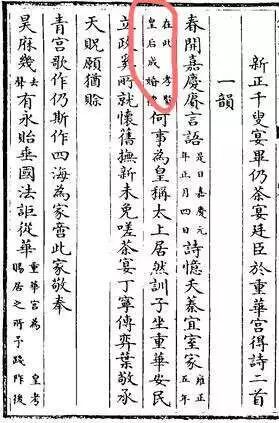 新正千叟宴畢仍茶宴廷臣於重華宮得詩二首
一韻
春開嘉慶賡言語是日嘉慶元年正月四日詩憶夭蓁宜室家雍正五年
在此孝賢皇后成婚禮何事為皇稱太上居然訓子坐重華安民
立政奚所就懷舊撫新未免嗟茶宴丁寧傳奕葉敬承
天貺願猶賒
青宮歌作仍斯作四海為家嘗此家敬奉
昊庥幾去聲有永貽垂國法詎從華重華宮為皇考賜居之所予踐阼後